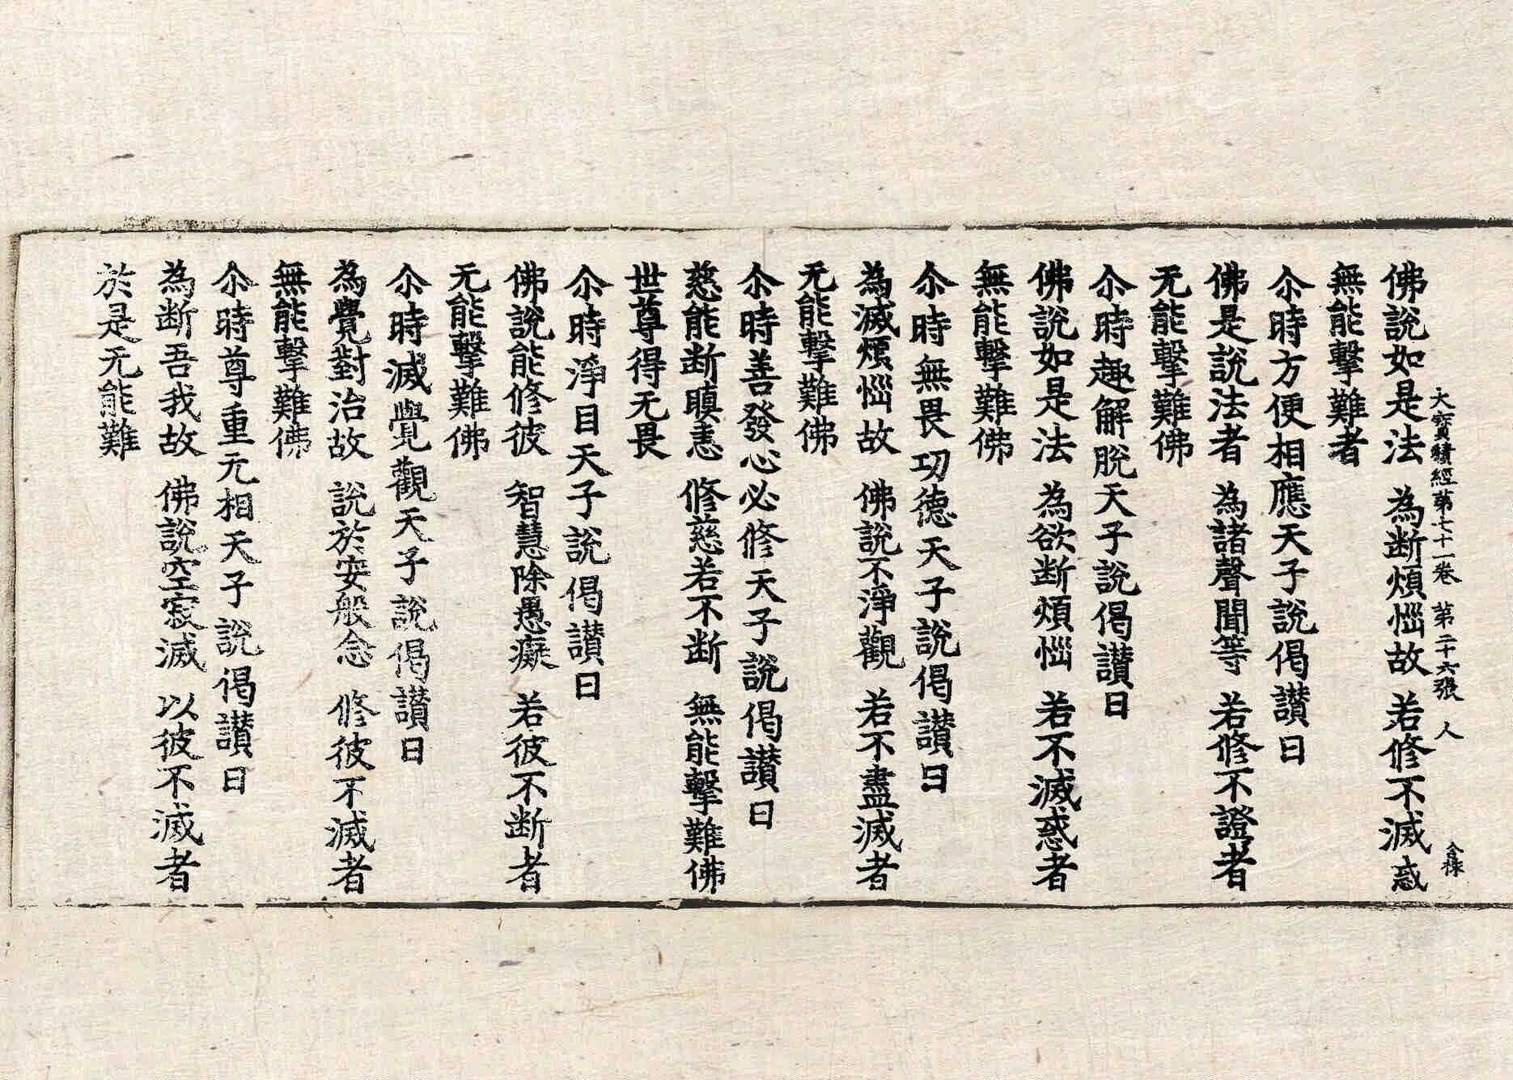 大寶積經第七十一卷　第二十六張　人
佛說如是法　為斷煩惱故　若修不滅惑
無能擊難者
尒時方便相應天子說偈讃曰
佛是說法者　為諸聲聞等　若修不證者
无能擊難佛
尒時趣解脫天子說偈讃曰
佛說如是法　為欲斷煩惱　若不滅惑者
無能擊難佛
尒時無畏功德天子說偈讃曰
為滅煩惱故　佛說不淨觀　若不盡滅者
无能擊難佛
尒時善發心必修天子說偈讃曰
慈能斷瞋恚　修慈若不斷　無能擊難佛
世尊得无畏
尒時淨目天子說偈讃曰
佛說能修彼　智慧除愚癡　若彼不断者
无能擊難佛
尒時滅覺觀天子說偈讃曰
為覺對治故　說於安般念　修彼不滅者
無能擊難佛
尒時尊重无相天子說偈讃曰
為断吾我故　佛說空寂滅　以彼不滅者
於是无能難